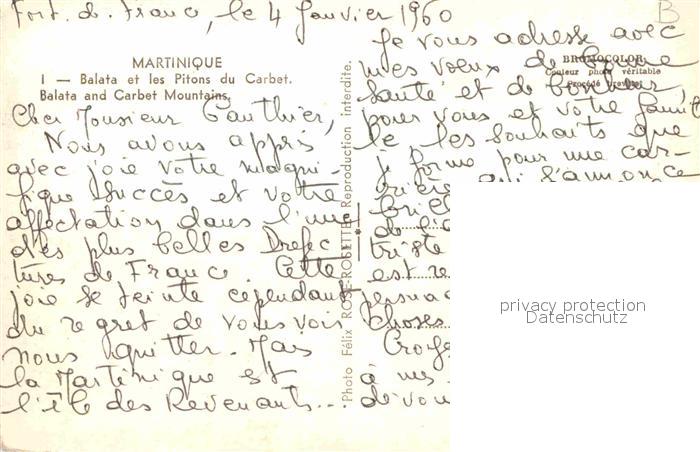 Fort. de. France, le 4 Janvier 1960
B
MARTINIQUE
1 — Balata et les Pitons du Carbet.
Balata and Carbet Mountains.
Cher Monsieur Gauthier,
Nous avons appris
avec joie votre magni-
fique succès et votre
affectation dans l'une
des plus belles Préfec
tures de France. Cette
joie se teinte cependant
du regret de vous voir
nous quitter. Mais
la Martinique est
l'île des Revenants...
Photo Félix ROSE-ROSETTE Reproduction interdite.
BROMOCOLOR
Couleur photo véritable
Procédé breveté
Je vous adresse avec
mes voeux de bonne
santé et de bonheur,
pour vous et votre famil
le les souhaits que
je forme pour une car-
rière qui s'annonce
bril
de
triste
est re
persua
choses
Croye
à mes
de vou
privacy protection
Datenschutz